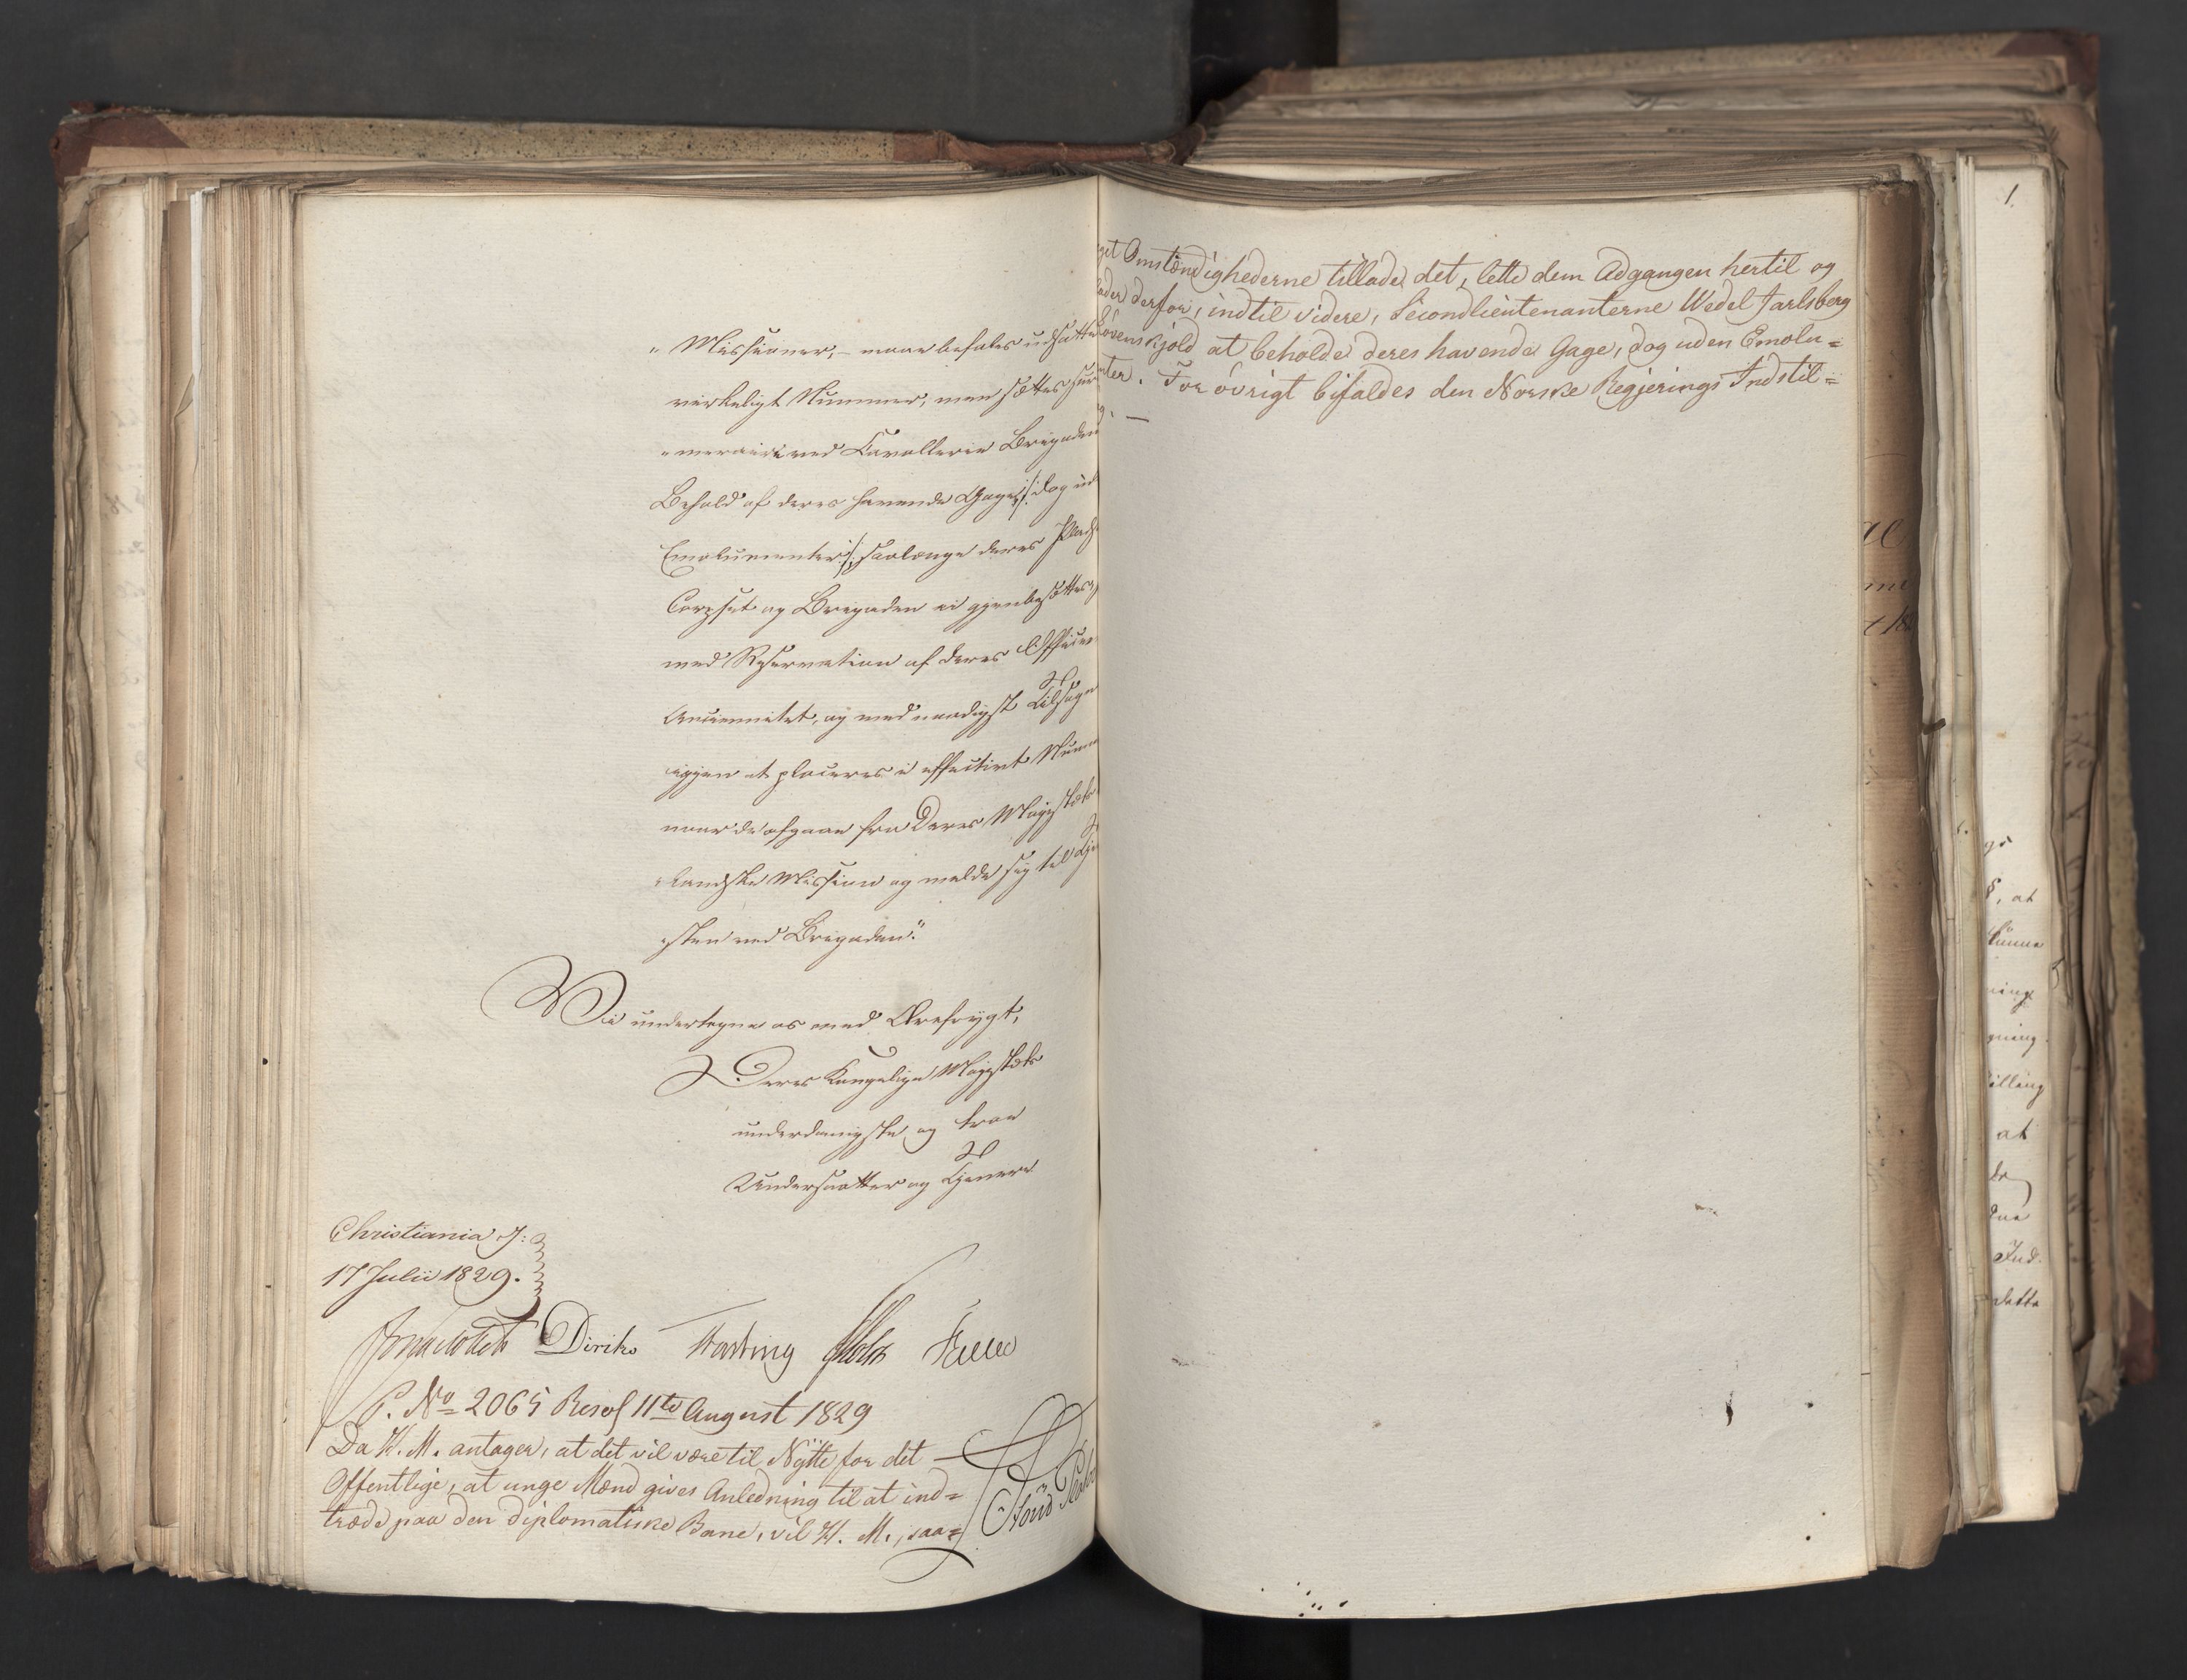 " Missioner, – maae befales udsatte
virkeligt Nummer, men sættes
" meraire ved Cavallerie Brigaden
Behold af deres havende Gage /: dog ud
Emolumenter :/ saalænge deres
Corpset og Brigaden ei gjenbesættes,
med Reservation af deres Officeer
Anciennitet, og med naadigst Tilsagn
igjen at placeres i effectivt Num
naar de afgaae fra Deres Majestæts
landske Mission og melde sig til Tje
sten ved Brigaden".
Vi undertegne os med Ærefrygt,
Deres Kongelige Majestæts
underdanigste og troe
Undersaatter og Tjenere
Christiania d:
17 Julii 1829.
Diriks Krog Holst
P. No 2065 Resol 11te August 1829
Da H. M. antager, at det vil være til Nytte for det
Offentlige, at unge Mænd gives Anledning til at ind=
træde paa den diplomatiske Bane, vil H. M., saa=
get Omstændighederne tillade det, lette dem Adgangen hertil og
lader derfor, indtil videre, Secondlieutenanterne Wedel Jarlsberg
Lövenskjold at beholde deres havende Gage, dog uden Emolu=
nter. For övrigt bifaldes den Norske Regjerings Indstil=
g. —
1.
at
kunne
ning
gning
illing
at
Ind.
dette